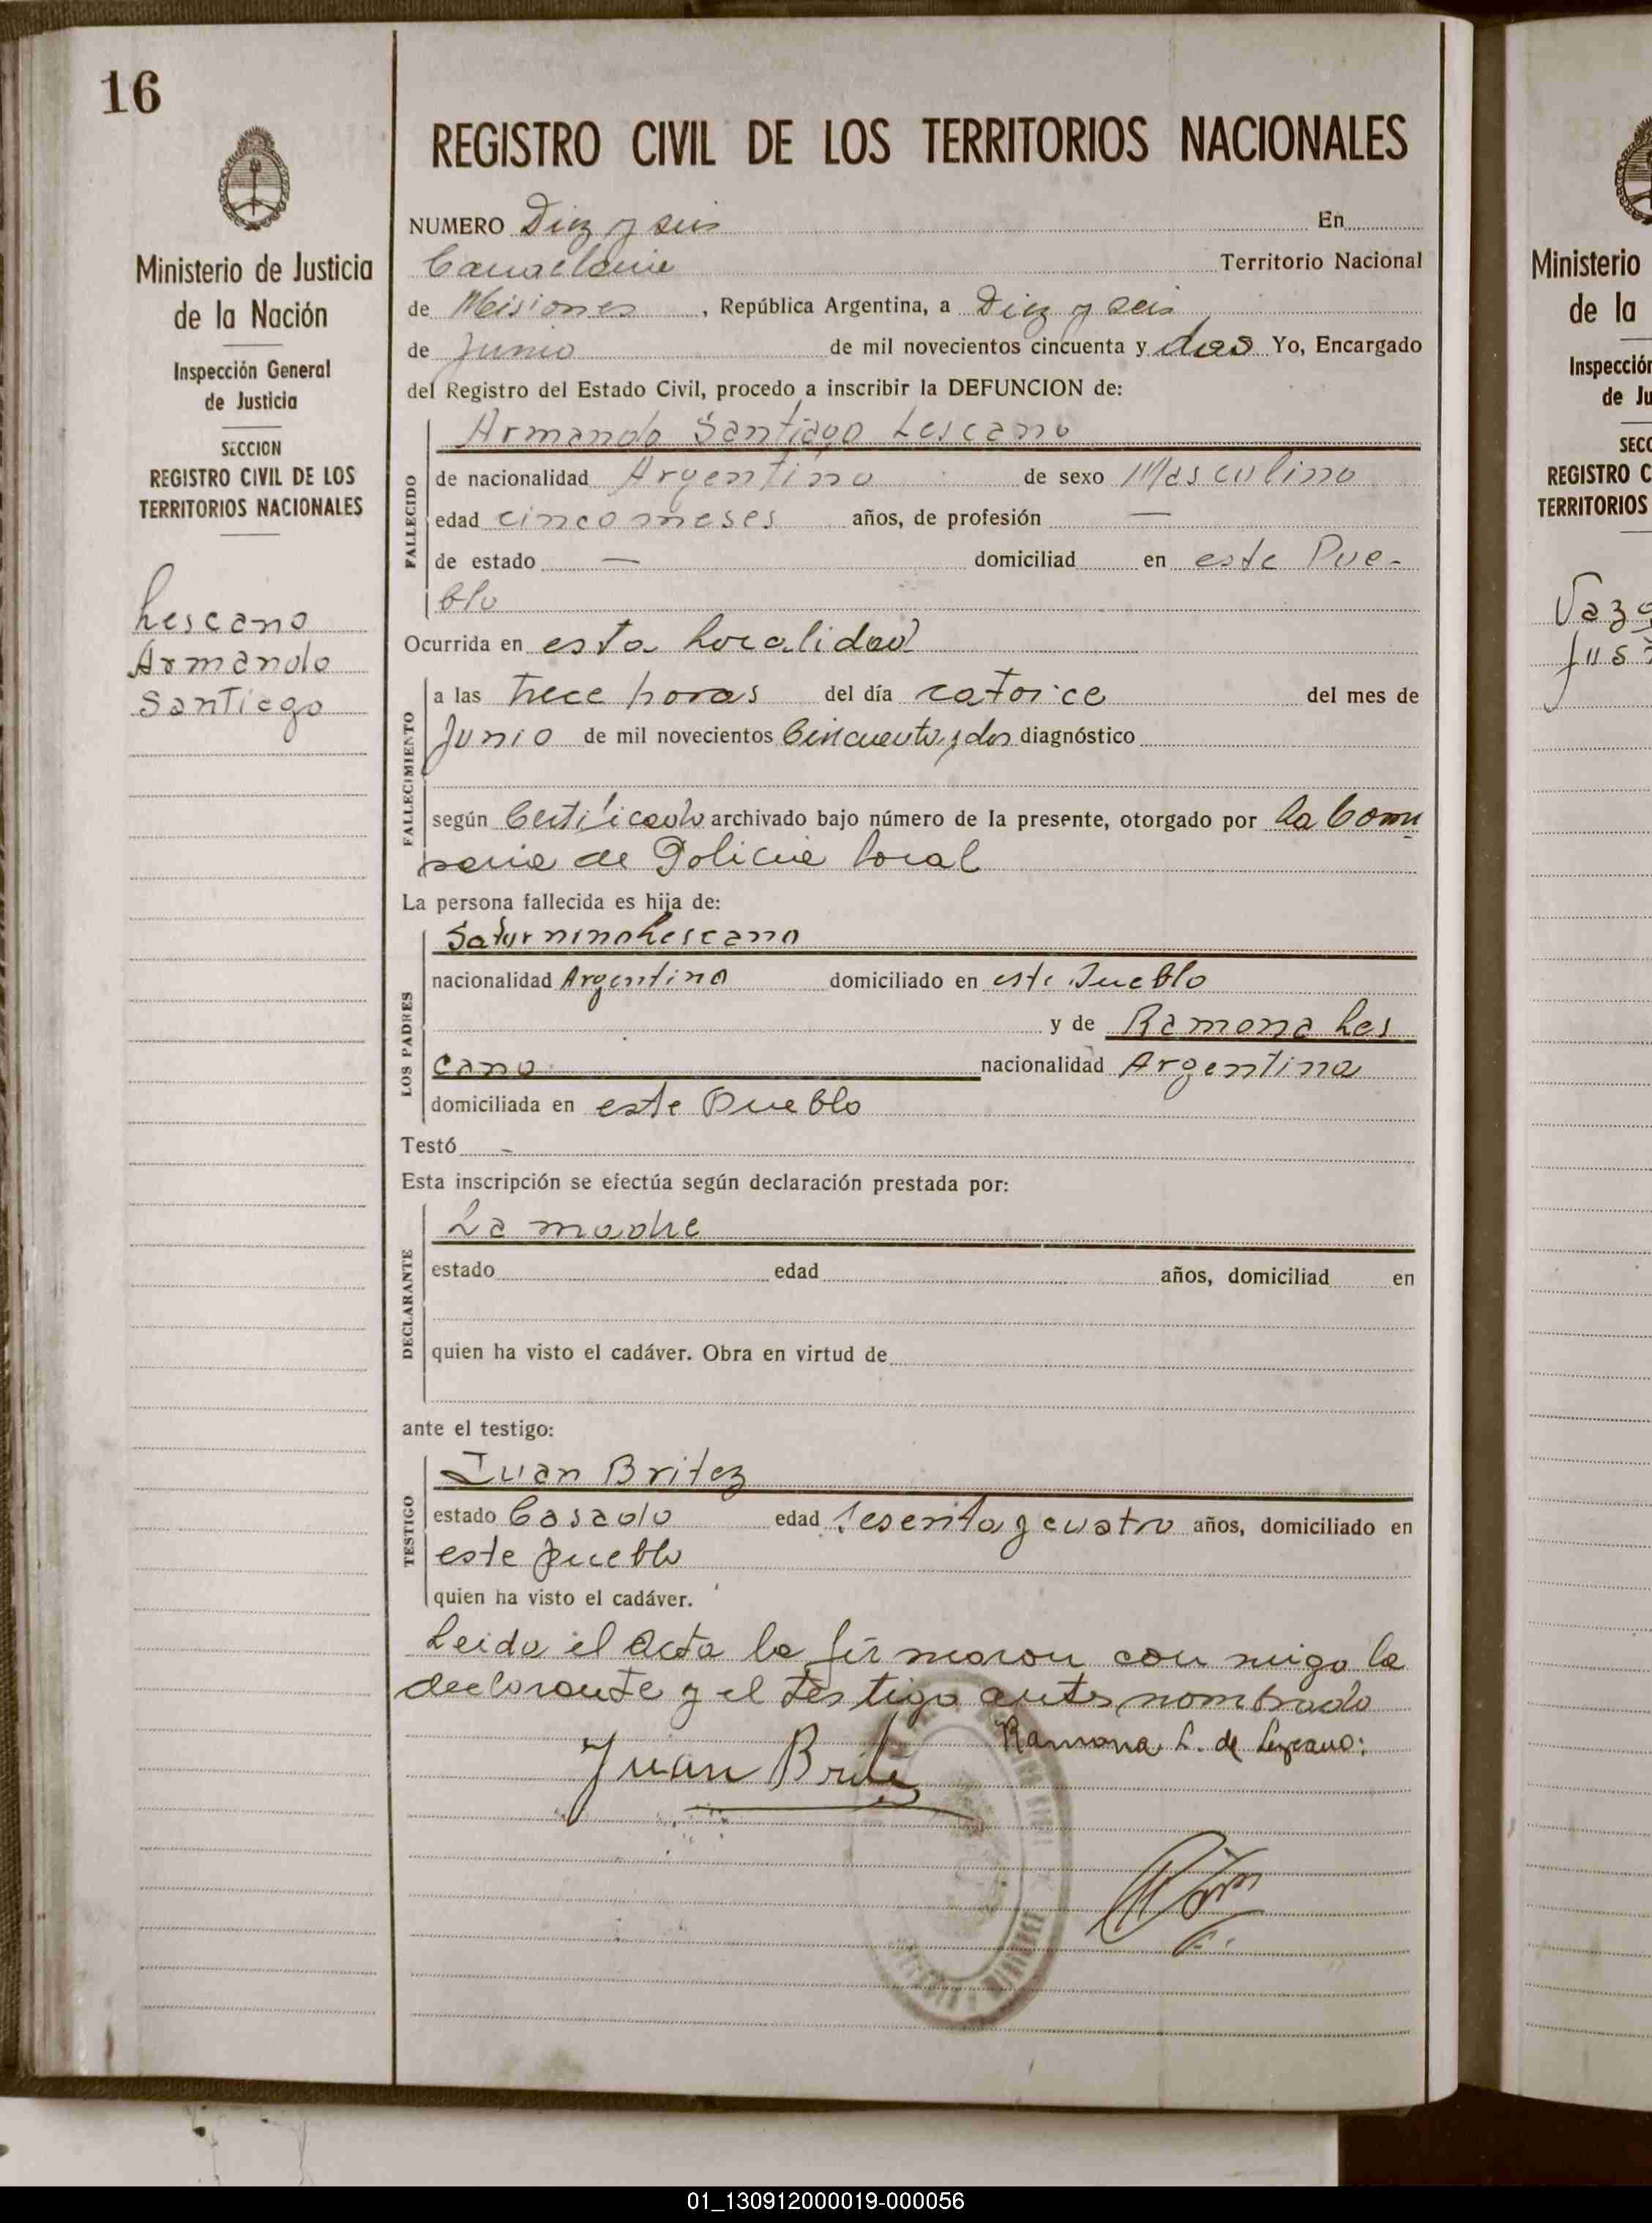 16
Ministerio de Justicia
de la Nación
Inspección General
de Justicia
SECCION
REGISTRO CIVIL DE LOS
TERRITORIOS NACIONALES
Lescano
Armando
Santiago
REGISTRO CIVIL DE LOS TERRITORIOS NACIONALES
NUMERO Diez y seis En
Candelaria Territorio Nacional
de Misiones, República Argentina, a Diez y seis
de Junio de mil novecientos cincuenta y dos Yo, Encargado
del Registro del Estado Civil, procedo a inscribir la DEFUNCION de:
FALLECIDO
Armando Santiago Lescano
de nacionalidad Argentina de sexo Masculino
edad cinco meses años, de profesión —
de estado — domiciliad en este Pue-
blo
Ocurrida en esta localidad
FALLECIMIENTO
a las trece horas del día catorce del mes de
Junio de mil novecientos Cincuenta y dos diagnóstico
según Certificado archivado bajo número de la presente, otorgado por la Comi
saria de Policia local
La persona fallecida es hija de:
LOS PADRES
Saturnino Lescano
nacionalidad Argentina domiciliado en este Pueblo
y de Ramona Les
cano nacionalidad Argentina
domiciliada en este Pueblo
Testó -
Esta inscripción se efectúa según declaración prestada por:
DECLARANTE
La madre
estado edad años, domiciliad en
quien ha visto el cadáver. Obra en virtud de
ante el testigo:
TESTIGO
Juan Britez
estado Casado edad sesenta y cuatro años, domiciliado en
este pueblo
quien ha visto el cadáver.
Leida el acta la firmaron con migo la
declarante y el testigo antes nombrado
Ramona L. de Lezcano:
Juan Britez
Ministerio
de la
Inspección
de Ju
SECC
REGISTRO C
TERRITORIOS
01_130912000019-000056